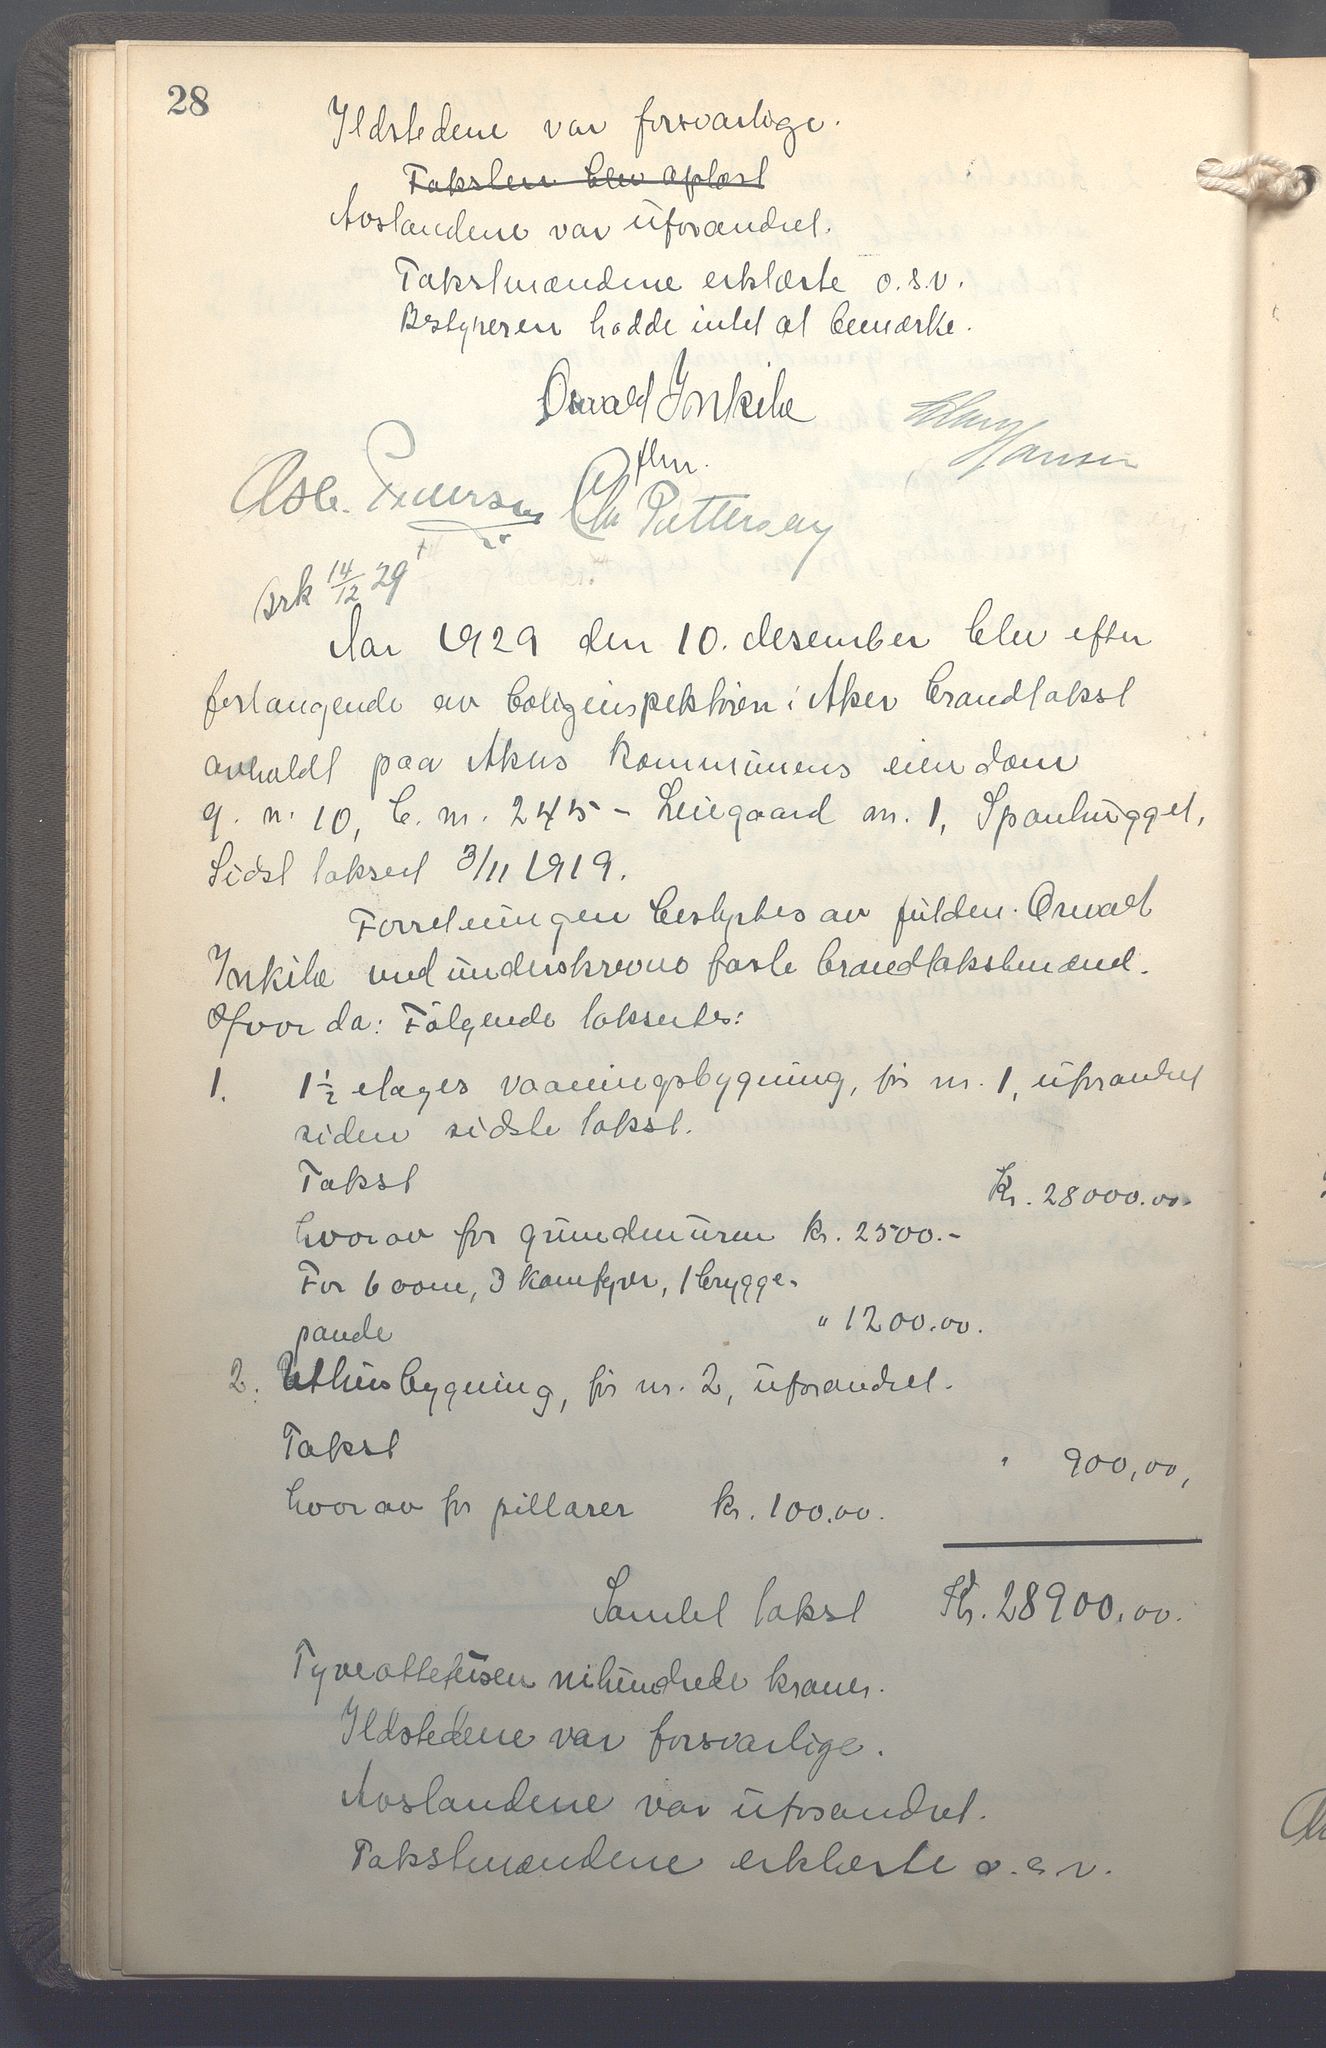 28
Ildstedene var forsvarlige.
Taksten blev oplæst
Avstandene var uforandret.
Takstmændene erklærte o.s.v.
Bestyreren hadde intet at bemærke.
Osvald Inkilæ
flm.
Hansen
Ask. Ch Pettersen
14/12 29
Aar 1929 den 10. desember blev efter
forlangende av boliginspektøren i Aker brandtakst
avholdt paa Akers kommunens eiendom
g. n. 10, b. nr. 245 - Leiegaard nr. 1, Spanhugget,
Sidst taksert 3/11 1919.
Forretningen bestyrtes av fuldm. Osvald
Inkilæ med underskrevne faste brandtakstmænd.
Hvor da: Følgende taksertes:
1. 1½ etages vaaningsbygning, før nr. 1, uforandret
siden sidste takst.
Takst Kr. 28000.00
hvorav for grundmuren kr. 2500.-
For 6 ovne, 3 komfyrer, 1 brygge-
pande " 1200.00.
2. Uthusbygning, før nr. 2, uforandret.
Takst " 900,00,
hvorav for pillarer kr. 100.00.
Samlet takst Kr. 28900.00.
Tyveottetusen nihundrede kroner.
Ildstedene var forsvarlige.
Avstandene var uforandret.
Takstmændene erklærte o.s.v.